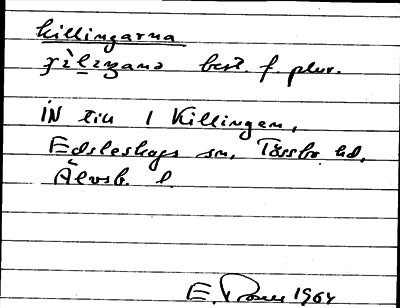 killingarna
best. f. plur.
IN till 1 Killingen,
Edsleskogs sn, Tössbo hd,
Älvsb. l.
E. 1964